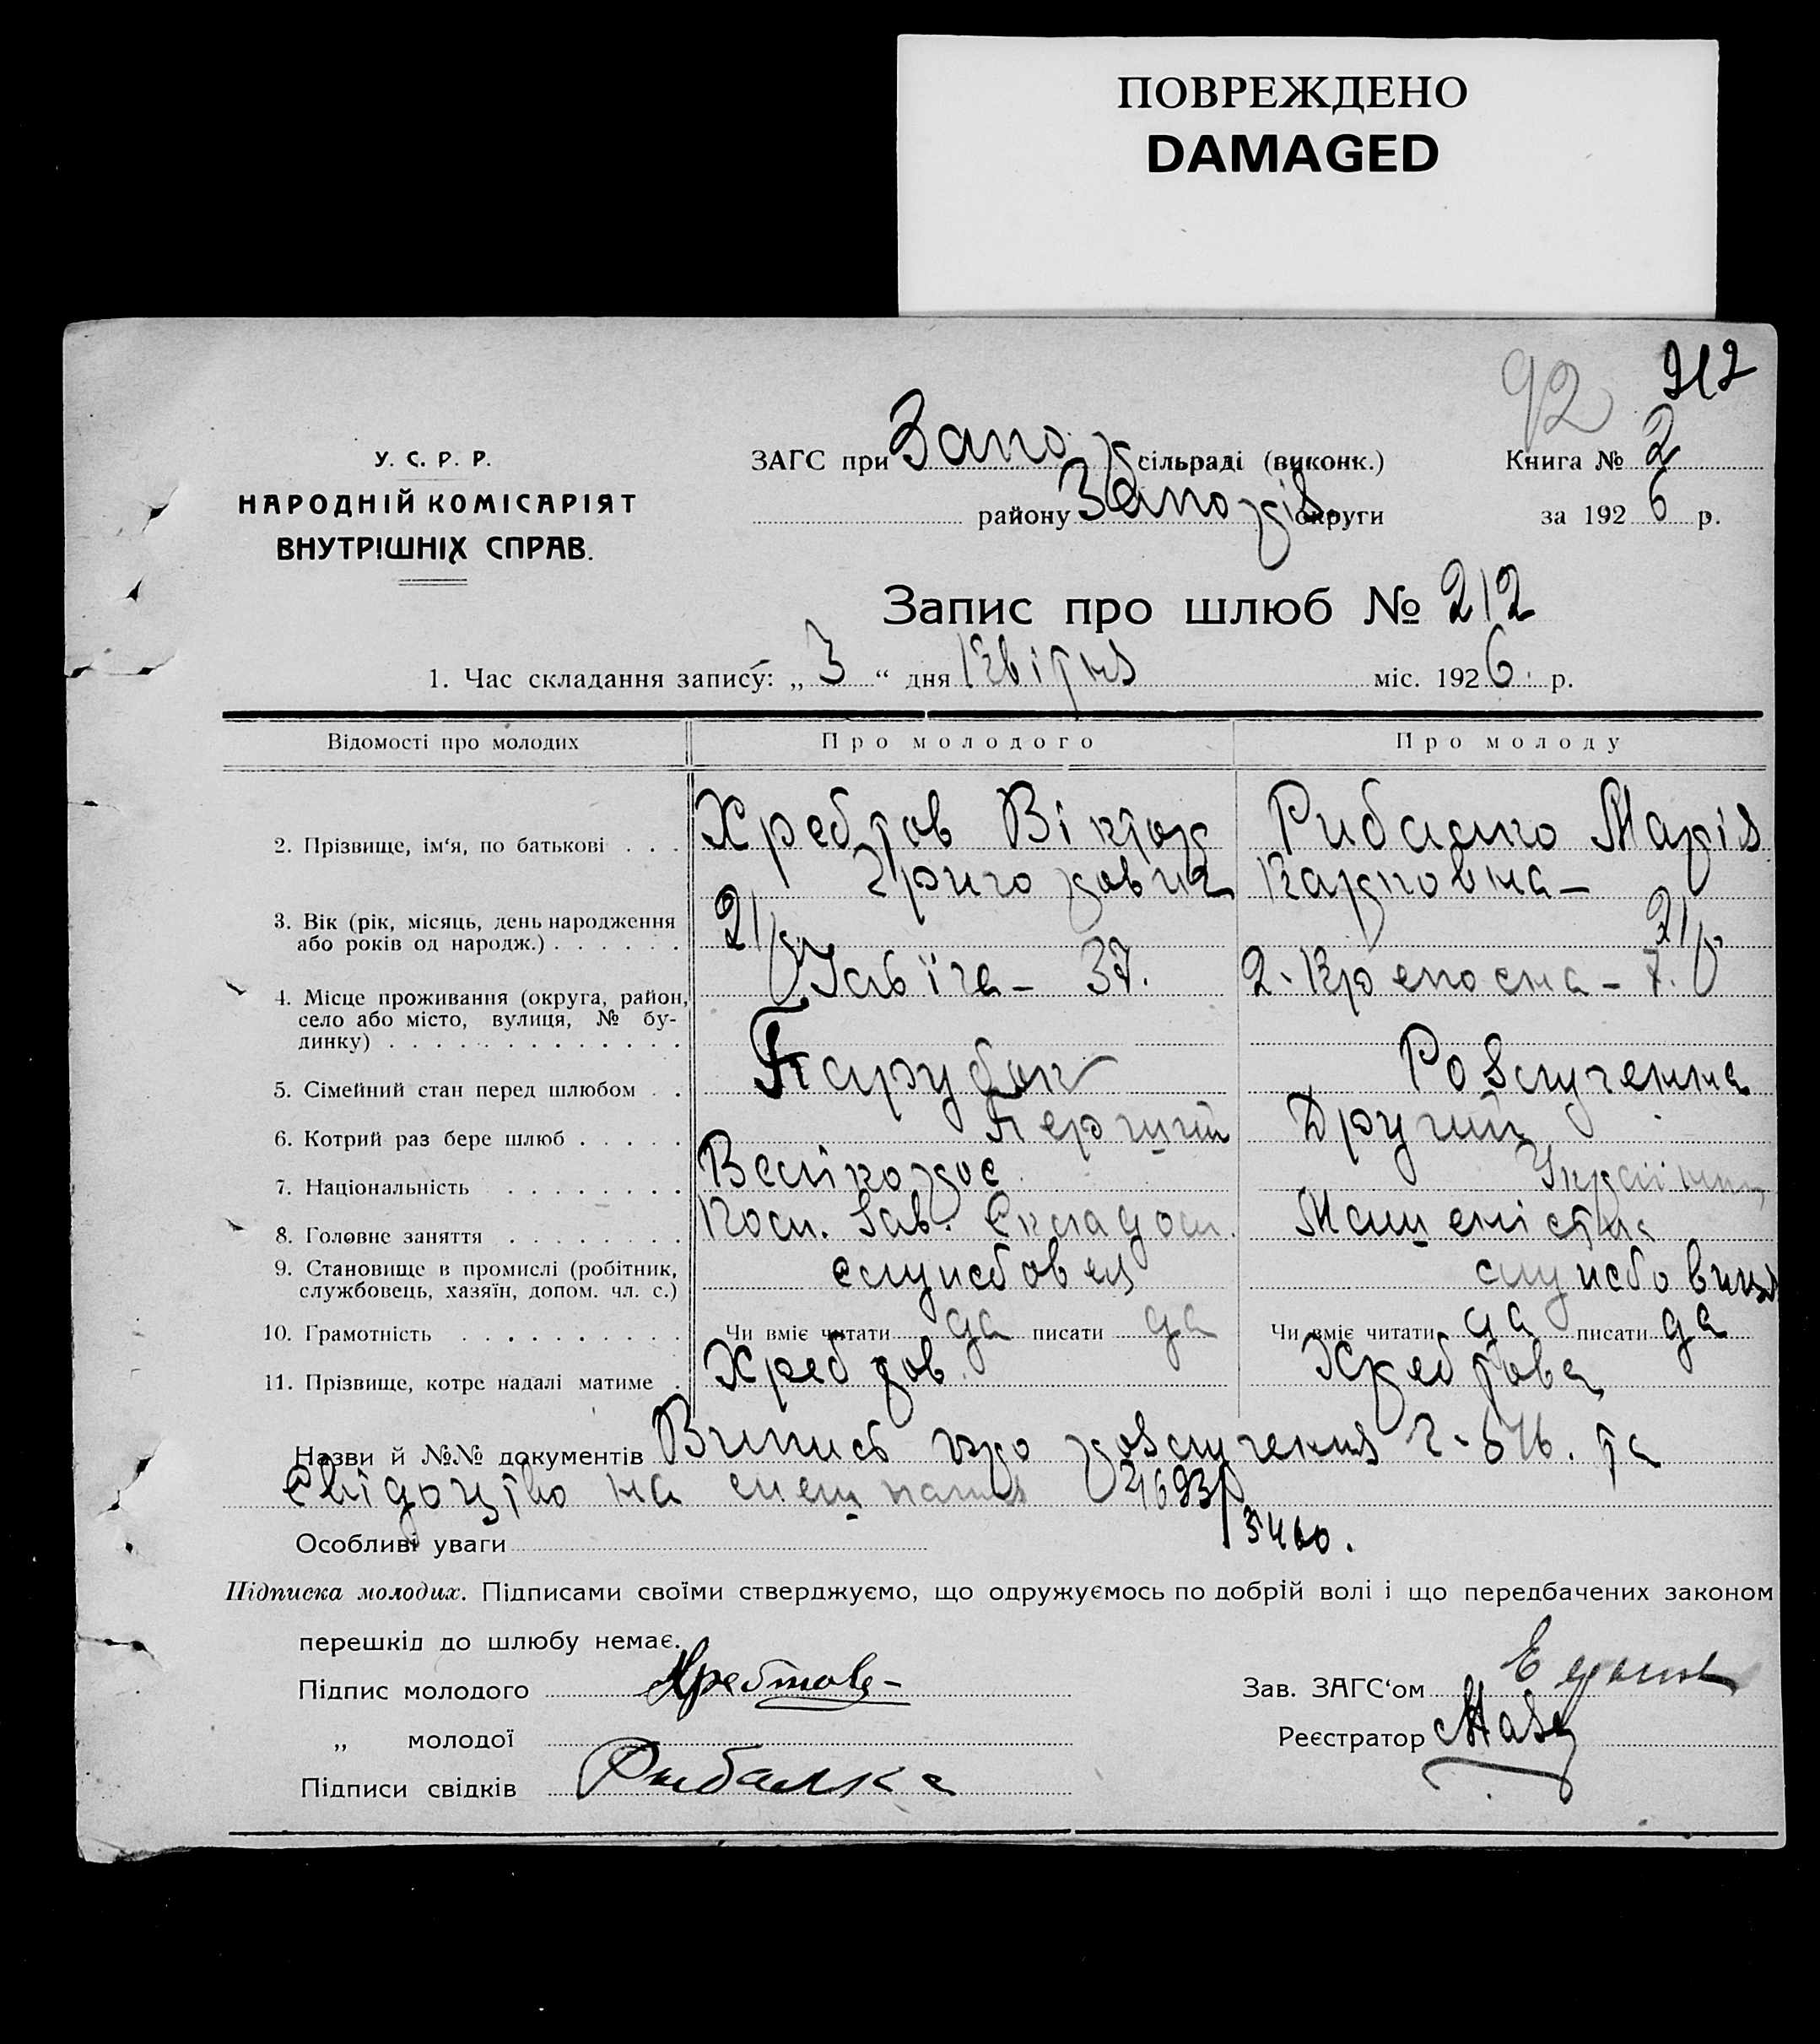 ПОВРЕЖДЕНО
DAMAGED
92 212
У. С. Р. Р.
НАРОДНІЙ КОМІСАРІЯТ
ВНУТРІШНІХ СПРАВ.
ЗАГС при Запор сільраді (виконк.)
району Запоріз. округи
Книга № 2
за 1926 р.
Запис про шлюб № 212
1. Час складання запису: „ 3 “ дня Квітня міс. 1926 р.
Відомості про молодих Про молодого Про молоду
2. Прізвище, ім‘я, по батькові . . . Хребтов Віктор Рибалко Марія
Григорович Карповна –
3. Вік (рік, місяць, день народження
або років од народж.) . . . . . . 21 р. 21 р.
4. Місце проживання (округа, район,
село або місто, вулиця, № бу-
динку) . . . . . . . . . . . . . 37. 2. Крепосна – 7.
5. Сімейний стан перед шлюбом . . Парубок Розлученна
6. Котрий раз бере шлюб . . . . . Перший Другий
7. Національність . . . . . . . . Велікорос Українка
8. Головне заняття . . . . . . . . Зав. Складом. Машеністка
9. Становище в промислі (робітник,
службовець, хазяїн, допом. чл. с.) службовец службовиця
10. Грамотність . . . . . . . . . . Чи вміє читати да писати да Чи вміє читати да писати да
11. Прізвище, котре надалі матиме . Хребтов Хребтова
Назви й №№ документів Випись про розлучення та
свідоцтво на 21693/5460.
Особливі уваги
Підписка молодих. Підписами своїми стверджуємо, що одружуємось по добрій волі і що передбачених законом
перешкід до шлюбу немає.
Підпис молодого Хребтов
„ молодої
Підписи свідків Рыбалка
Зав. ЗАГС‘ом
Реєстратор